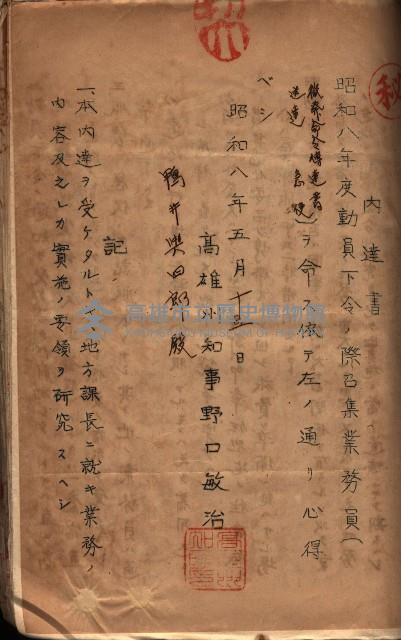 秘
内達書
昭和八年度動員下令ノ際召集業務員(
充員召集令状送達書
送達急使)ヲ命ス依テ左ノ通リ心得
ベシ
昭和八年五月十三日
高雄州知事野口敏治
鴨井樂四郎殿
記
一、本内達ヲ受ケタルトキハ地方課長ニ就キ業務ノ
内容及之レカ實施ノ要領ヲ研究スヘシ
高雄市立歷史博物館